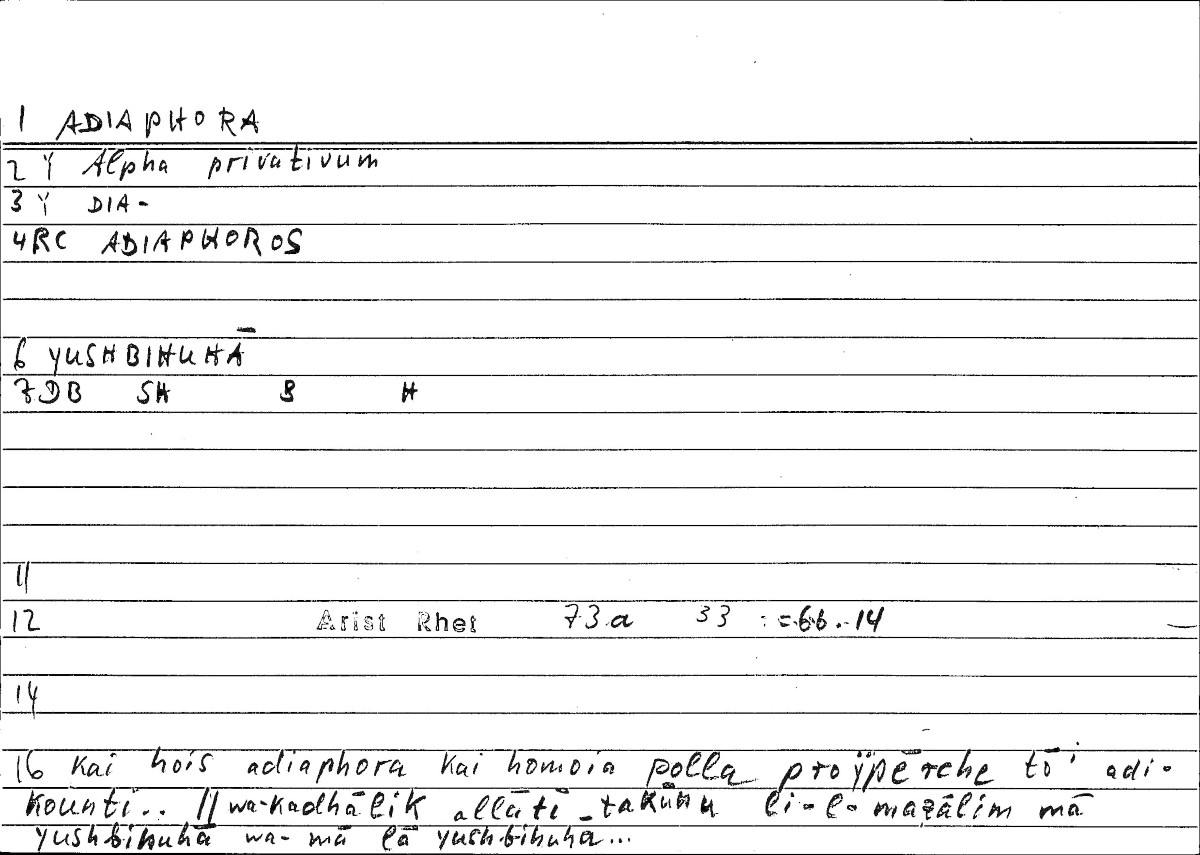 1 ADIAPHORA
2 Y Alpha privativum
3 Y DIA-
4RC ADIAPHOROS
6 YUSHBIHUHĀ
7DB SH B H
11
12 Arist Rhet 73a 33 := 66.14
14
16 Kai hois adiaphora kai homoia polla proÿpērche tō' adi-
kounti.. // wa-kadhālik allātī takūnu li-l-maẓālim mā
yushbihuhā wa-mā lā yushbihuha...